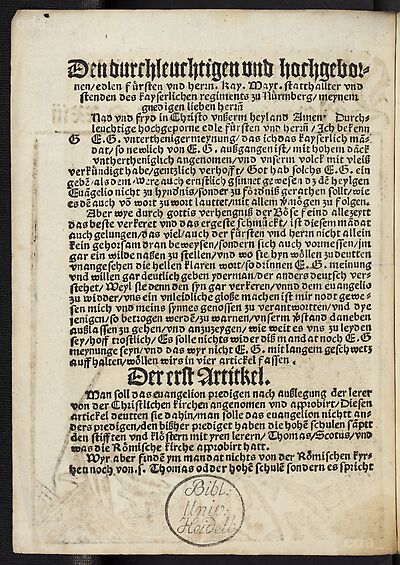 Den durchleuchtigen vnd hochgebor-
nen/edlen fürsten vnd herrn. Kay. Mayt. statthallter vnd
stenden des kayserlichen regiments zu Nürmberg/ meynem
gnedigen lieben herrn̄
Nad vnd fryd in Christo vnßerm heyland Amen. Durch-
leuchtige hochgeporne edle fürsten vnd herrn̄/ Ich bekenn
G E. G. vnterthenigermeynung/ das ich das kayserlich mā-
dat/ so newlich von E. G. außgangen ist/ mit hohem dāck
vnthertheniglich angenomen/ vnd vnserm volck mit vleiß
verkündigt habe/gentzlich verhofft/ Got hab solchs E. G. ein
gebē/ als dem. Were auch ernstlich gsinnet gewesen dz dē heylgen
Euāgelio nicht zu hyndnis/ sonder zu fōrdniß gerathen sollt/ wie
es dē auch vō wort zu wort lauttet/mit allem vmögen zu folgen.
Aber wye durch gottis verhengniß der Böse feind allezeytt
das beste verkeret vnd das ergeste schmückt/ ist diesem mādat
auch gelungen/ das viel/ auch der fürsten vnd herrn nicht allein
kein gehorsam dran beweysen/ sondern sich auch vormessen/ jm
gar ein wilde naßen zu stellen/ vnd wo sie hyn wöllen zu deutten
vnangesehen die hellen klaren wort/ so drinnen E. G. meinung
vnd willen gar deutlich geben yderman/ der anders deutsch ver-
stehet/ Weyl sie denn den syn gar verkeren/ vnnd dem euangelio
zu widder/ vns ein vnleidliche gloße machen ist mir nodt gewe-
sen mich vnd meins synnes genossen zu verantwortten/ vnd dye
jenigen/ so betrogen werdē/ zu warnen/ vnserm vstand daneben
außlassen zu gehen/ vnd anzuzeygen/ wie weit es vns zu leyden
sey/ hoff trostlich/ Es solle nichts wider diß mandat noch E. G.
meynunge seyn/ vnd das wyr nicht E. G. mit langem geschwetz
auff halten/ wöllen wirs in vier artickel fassen.
Der erst Artickel.
Man soll das euangelion predigen nach außlegung der lerer
von der Christlichen kirchen angenomen vnd approbirt/ Diesen
artickel deutten sie dahin/ man solle das euangelion nicht an-
ders predigen/ den bißher prediget haben die hohē schulen sāpt
den stifften vnd klöstern mit yren lerern/ Thomas/ Scotus/ vnd
was die Römische kirche approbirt hatt.
Wyr aber findē ym mandat nichts von der Römischen kyr-
chen noch von .s. Thomas odder hohē schulē sondern es spricht
Bibl:
Univ:
Heidelb: